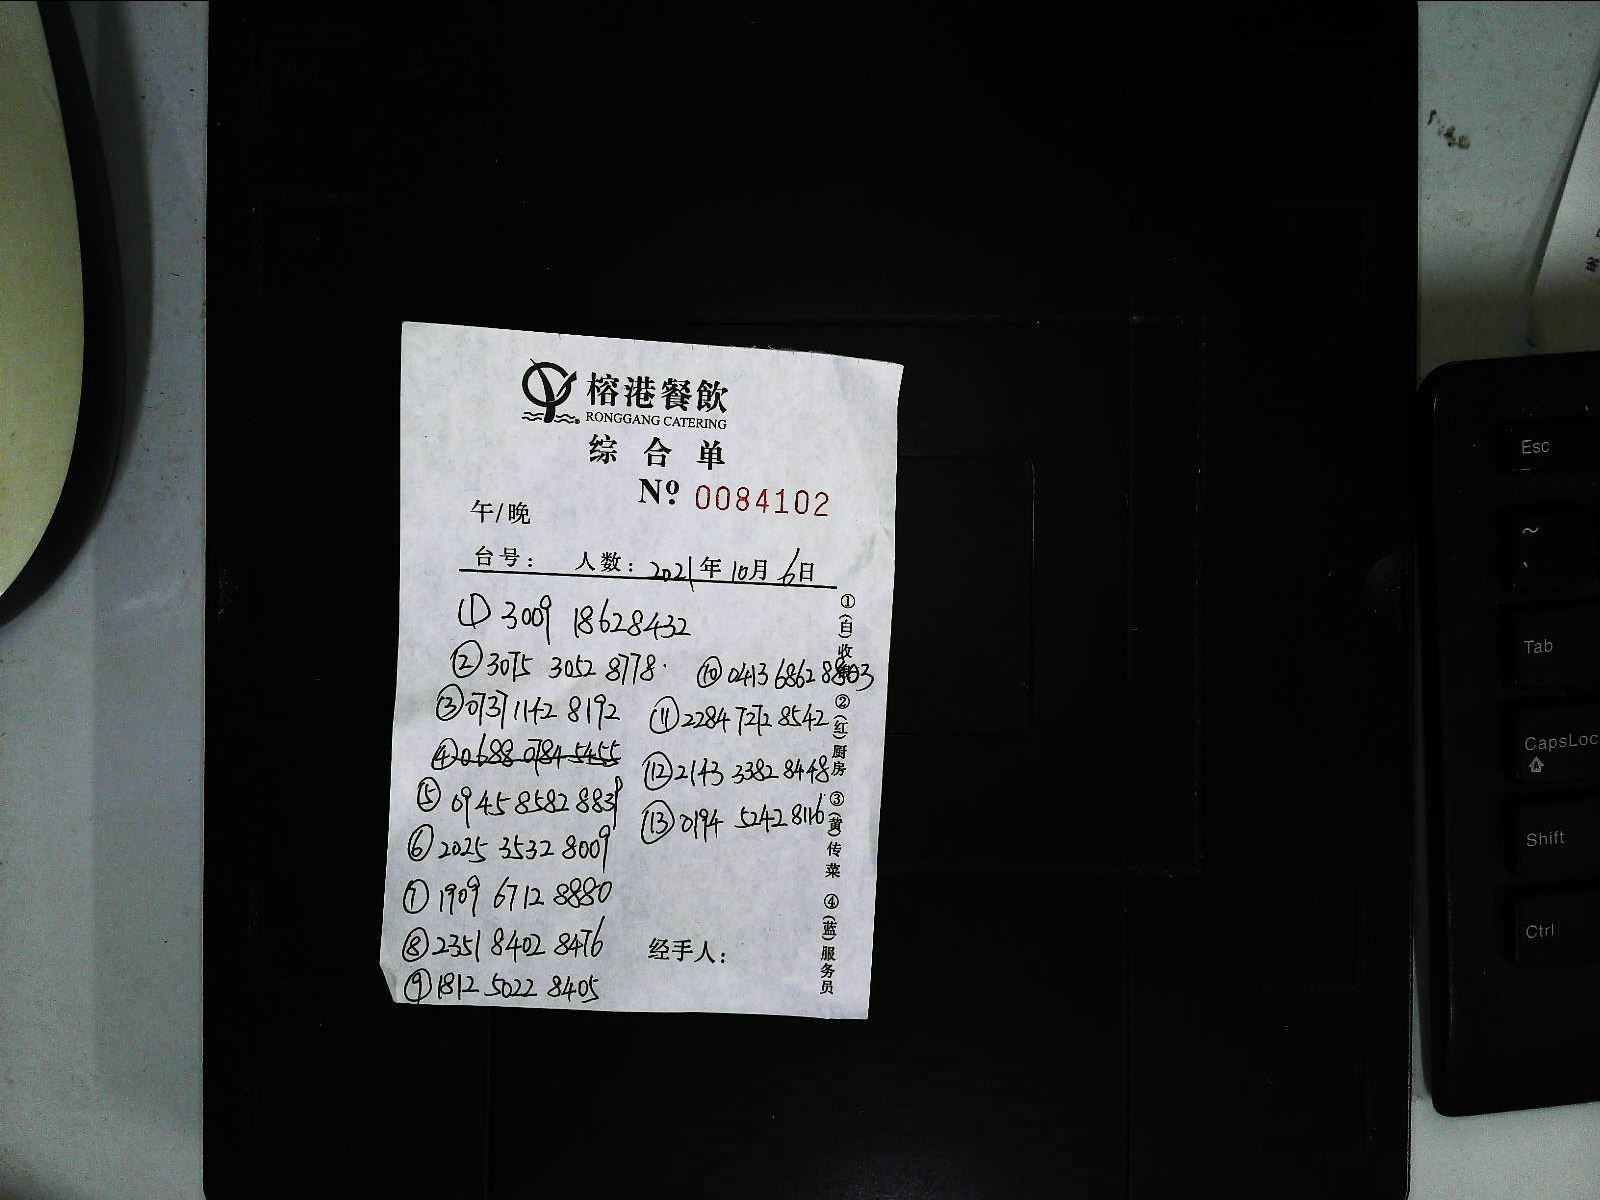 榕港餐飲
RONGGANG CATERING
综合单
Nº 0084102
午/晚
台号： 人数：2021年10月6日
① 3009 18628432
② 3075 3052 8778
③ 0737 1142 8192
④ 0688 0784 5455
⑤ 0945 8582 8839
⑥ 2025 3532 8009
⑦ 1909 6712 8880
⑧ 2351 8402 8476
⑨ 1812 5022 8405
⑩ 0413 6862 8803
⑪ 2284 7272 8542
⑫ 2143 3382 8448
⑬ 0194 5242 8116
经手人：
①(白)收
②(红)厨房
③(黄)传菜
④(蓝)服务员
Esc
~
Tab
CapsLoc
Shift
Ctrl